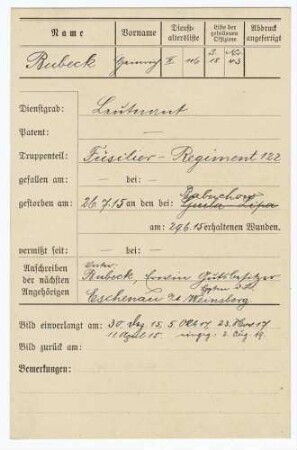 Name Vorname Dienst-altersliste Liste der gefallenen Offiziere Abdruck angefertigt
Rubeck II 116 18 No 43
Dienstgrad: Leutnant
Patent: —
Truppenteil: Füsilier-Regiment 122
gefallen am: — bei: —
Babuchow
gestorben am: 26.7.15 an den bei: Gnila Lipa
am: 29.6.15 erhaltenen Wunden.
vermißt seit: — bei: —
Vater:
Anschreiben der nächsten Angehörigen Rubeck, Erwin Gutsbesitzer
Eschenau Weinsberg
Bild einverlangt am: 30. 15. 5 Okt 17 23. Nov 17
Bild zurück am:
Bemerkungen: